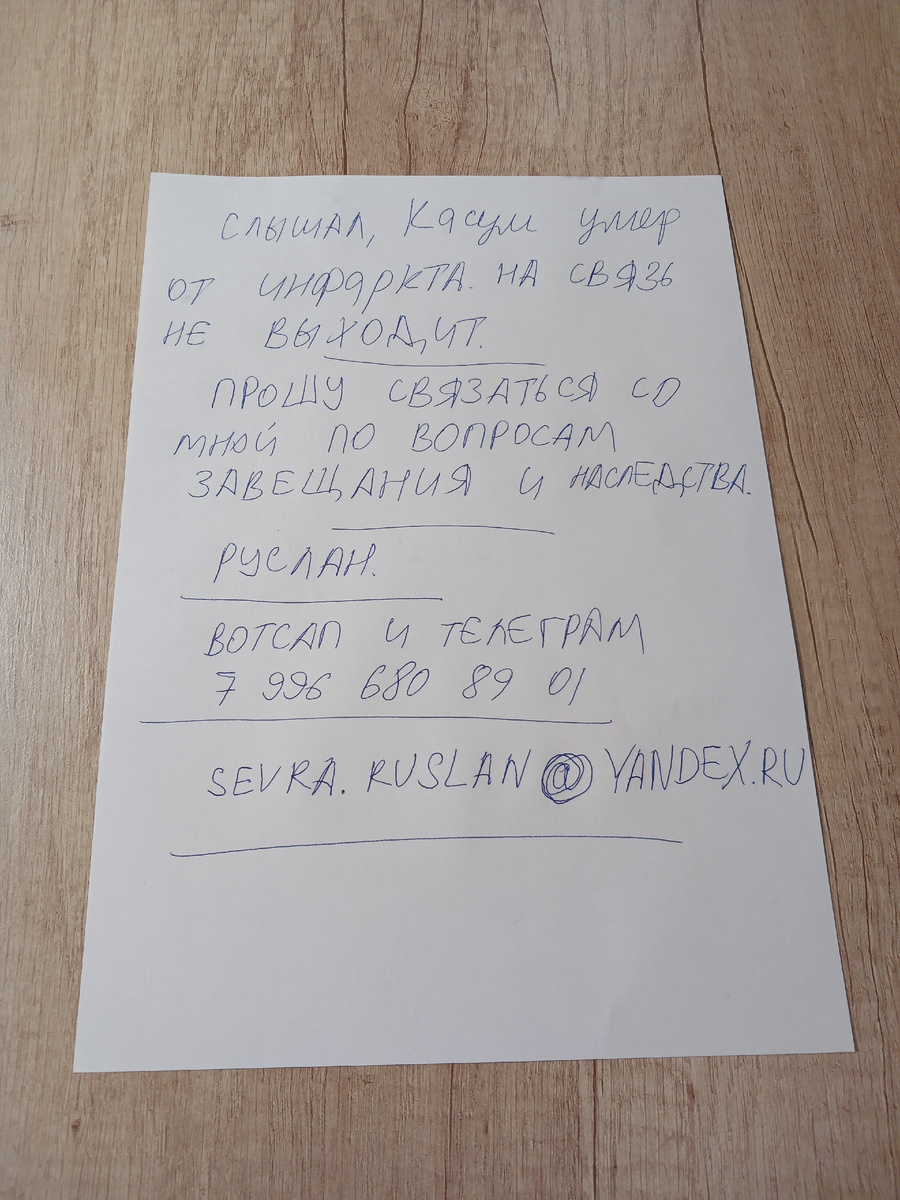 СЛЫШАЛ, Касум умер
ОТ ИНФАРКТА. НА СВЯЗЬ
НЕ ВЫХОДИТ.
ПРОШУ СВЯЗАТЬСЯ СО
МНОЙ ПО ВОПРОСАМ
ЗАВЕЩАНИЯ И НАСЛЕДСТВА.
РУСЛАН.
ВОТСАП И ТЕЛЕГРАМ
7 996 680 89 01
SEVRA.RUSLAN@YANDEX.RU